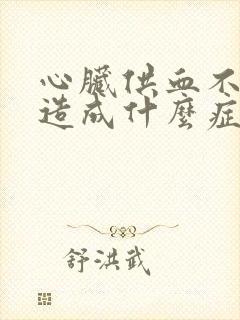 心臟供血不
造成什麼症
舒洪武